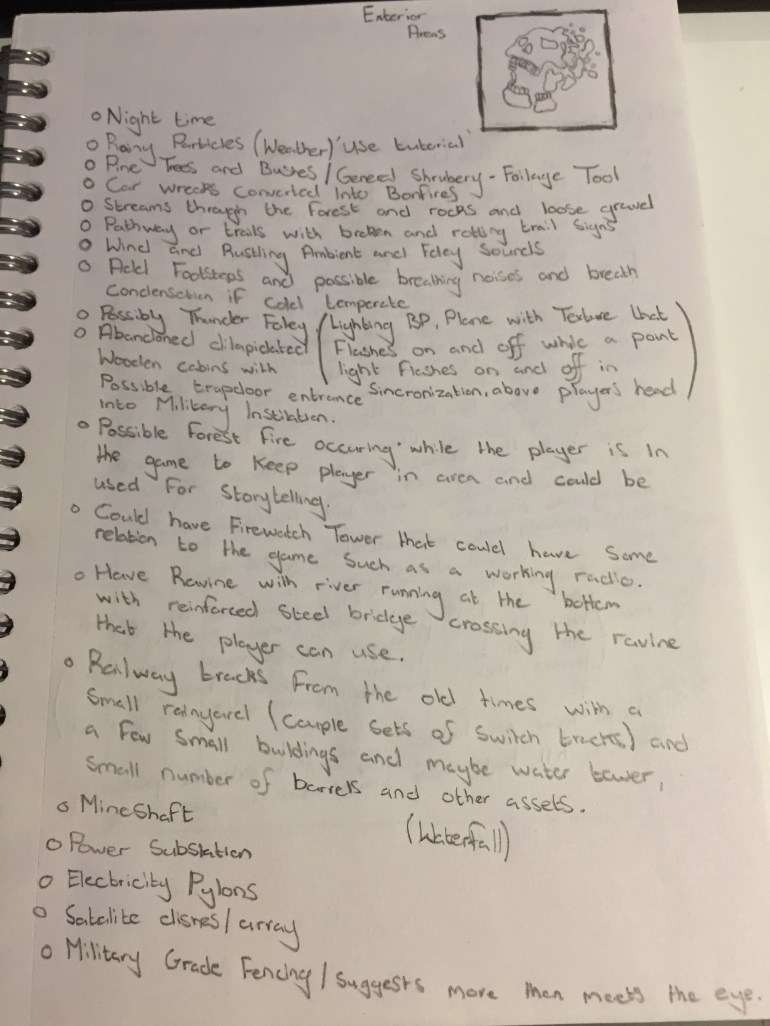 Exterior
Areas
o Night time
o Rainy Particles (Weather) 'Use tutorial'
o Pine Trees and Bushes / General Shrubery - Foilage Tool
o Car Wrecks Converted Into Bonfires
o Streams through the forest and rocks and loose gravel
o Pathway or trails with broken and rotting trail signs
o Wind and Rustling Ambient and Foley Sounds
o Add Footsteps and possible breathing noises and breath
Condensation if cold temperate
o Possibly Thunder Foley (Lighting BP, Plane with Texture that
Flashes on and off while a point
light flashes on and off in
Sincronization, above players head)
o Abandoned dilapidated
Wooden cabins with
Possible trapdoor entrance
Into Military Instilation.
o Possible Forest Fire occuring while the player is In
the game to Keep player in area and could be
used For Storytelling.
o Could have Firewatch Tower that could have Some
relation to the game Such as a working radio.
o Have Ravine with river running at the bottom
with reinforced Steel bridge crossing the ravine
that the player can use.
o Railway tracks From the old times with a
Small rainyard (Couple Sets of Switch tracks) and
a Few Small buildings and maybe water tower,
Small number of barrels and other assets.
o MineShaft
(Waterfall)
o Power Substation
o Electricity Pylons
o Satalite dishes / array
o Military Grade Fencing / Suggests more then meets the eye.